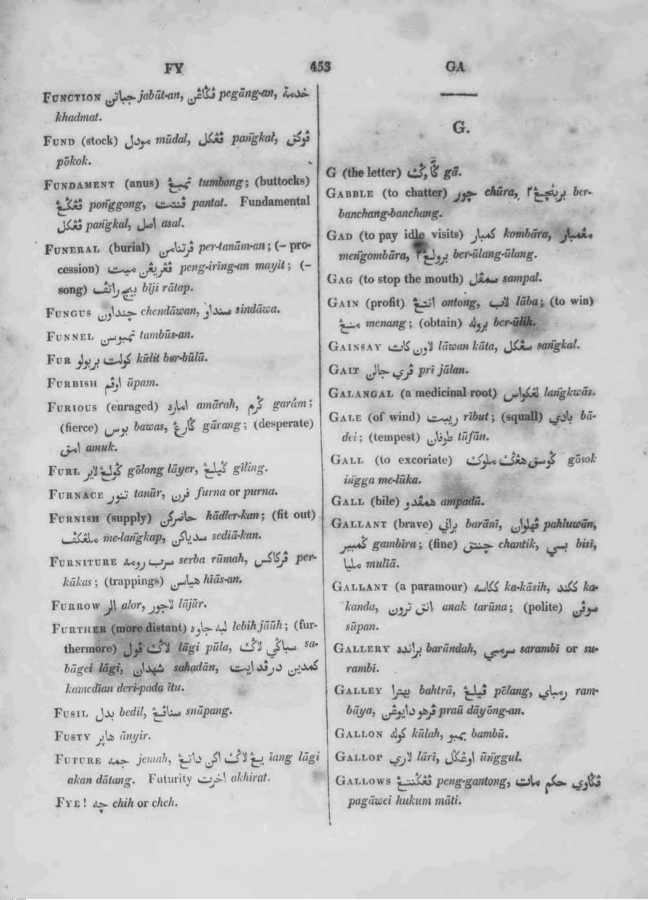 FY
453
GA
FUNCTION جباتن jabāt-an, ڤڬاڠن pegāng-an, خدمة
khadmat.
FUND (stock) مودل mūdal, ڤڠكل paṅgkal, ڤوكق
pōkok.
FUNDAMENT (anus) تمبڠ tumbong; (buttocks)
ڤڠڬڠ poṅggong, ڤنتت pantat. Fundamental
ڤڠكل paṅgkal, اصل asal.
FUNERAL (burial) per-tanām-an; (— pro-
cession) peng-īring-an mayit; (—
song) biji rātap.
FUNGUS چنداون chendāwan, سنداو sindāwa.
FUNNEL تمبوسن tambūs-an.
FUR كولت بربولو kūlit ber-būlū.
FURBISH اوڤم ūpam.
FURIOUS (enraged) اماره amārah, ڬرم garām;
(fierce) بوس bawas, ڬارڠ gārang; (desperate)
امق amuk.
FURL ڬولڠ لاير gōlong lāyer, ڬيليڠ gīling.
FURNACE تنور tanūr, فرن furna or purna.
FURNISH (supply) حاضركن hādler-kan; (fit out)
me-langkap, سدياكن sediā-kan.
FURNITURE سرب رومه serba rūmah, ڤركاكس per-
kākas; (trappings) هياسن hiās-an.
FURROW الر alor, لاجور lājūr.
FURTHER (more distant) لبه جاوه lebih jāūh; (fur-
thermore) لاڬ ڤول lāgi pūla, سباڬي لاڬ sa-
bāgei lāgi, شهدان sahadān, كمدين درڤد ايت
kamedian deri-pada itu.
FUSIL بدل bedil, سناڤڠ snāpang.
FUSTY هاير ānyir.
FUTURE جمه jemah, يڠ لاڬ اكن داتڠ iang lāgi
akan dātang. Futurity اخرت akhirat.
FYE! چه chih or cheh.
G.
G (the letter) ڬ gā.
GABBLE (to chatter) چور chūra, ber-
banchang-banchang.
GAD (to pay idle visits) كمبار kombāra, مڠمبار
meṅgombāra, ber-ūlang-ūlang.
GAG (to stop the mouth) سمڤل sampal.
GAIN (profit) انتڠ ontong, لاب lāba; (to win)
منڠ menang; (obtain) بروله ber-ūlih.
GAINSAY لاون كات lāwan kāta, سڠكل sangkal.
GAIT ڤري جالن pri jālan.
GALANGAL (a medicinal root) لڠكواس langkwās.
GALE (of wind) ريبت rībut; (squall) بادي bā-
dei; (tempest) طوفان tūfān.
GALL (to excoriate) ڬوسق هڠڬ ملوك gōsok
iṅgga me-lūka.
GALL (bile) همڤدو ampadū.
GALLANT (brave) براني barānī, ڤهلوان pahluwān,
ڬمبير gambīra; (fine) چنتق chantik, بسي bisi,
مليا muliā.
GALLANT (a paramour) ككاسه ka-kāsih, ككند ka-
kanda, انق ترون anak tarūna; (polite) سوڤن
sūpan.
GALLERY برانده barūndah, سرمبي sarambi or su-
rambi.
GALLEY بهترا bahtrā, ڤيلڠ pēlang, رمباي ram-
bāya, ڤرهو دايوڠن praū dāyōng-an.
GALLON كوله kūlah, بمبو bambū.
GALLOP لاري lāri, اوڠڬل ūṅggul.
GALLOWS ڤڠڬنتڠ peng-gantong, ڤڬاوي حكم مات
pagāwei hukum māti.